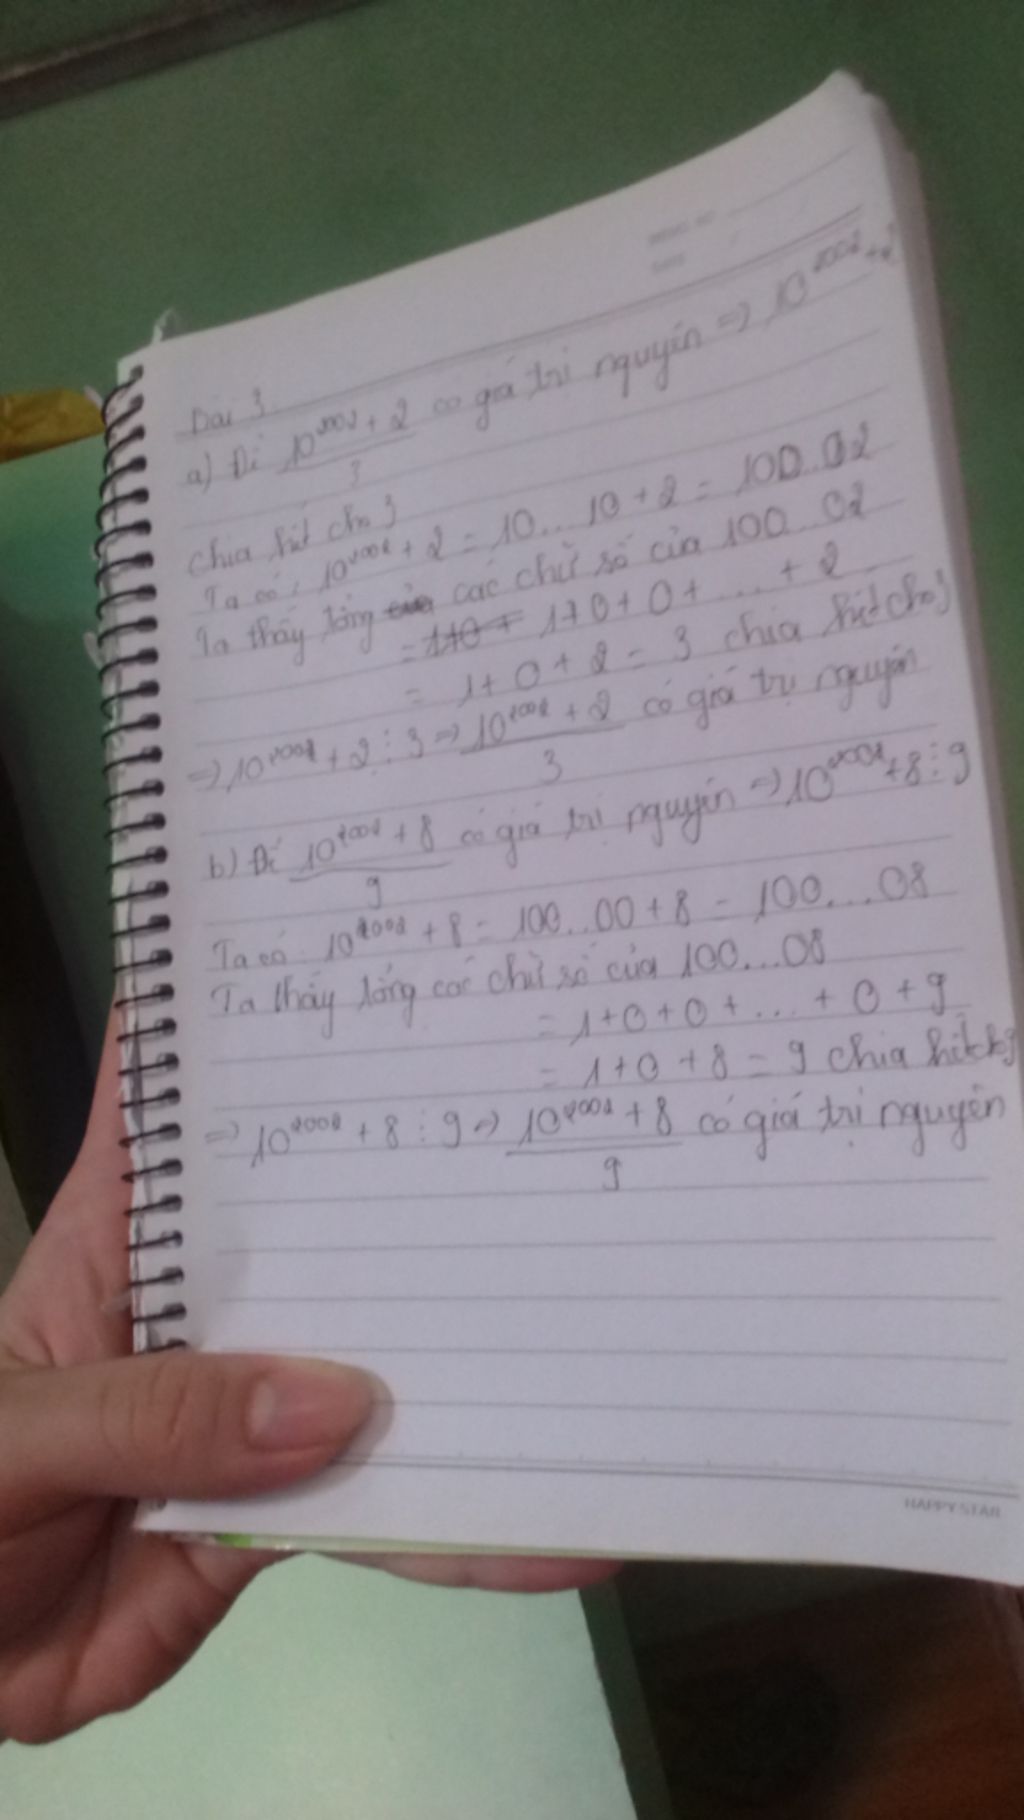 Bài 3
a) Để 10²⁰⁰² + 2 / 3 có giá trị nguyên => 10²⁰⁰² + 2
chia hết cho 3
Ta có: 10²⁰⁰² + 2 = 10...10 + 2 = 100..02
Ta thấy tổng các chữ số của 100...02
= 1+0+0+...+2
= 1+0+2 = 3 chia hết cho 3
=> 10²⁰⁰² + 2 ⋮ 3 => 10²⁰⁰² + 2 / 3 có giá trị nguyên
b) Để 10²⁰⁰² + 8 / 9 có giá trị nguyên => 10²⁰⁰² + 8 ⋮ 9
Ta có: 10²⁰⁰² + 8 = 100..00 + 8 = 100...08
Ta thấy tổng các chữ số của 100...08
= 1+0+0+...+0+9
= 1+0+8 = 9 chia hết cho 9
=> 10²⁰⁰² + 8 ⋮ 9 => 10²⁰⁰² + 8 / 9 có giá trị nguyên
HAPPY STAR